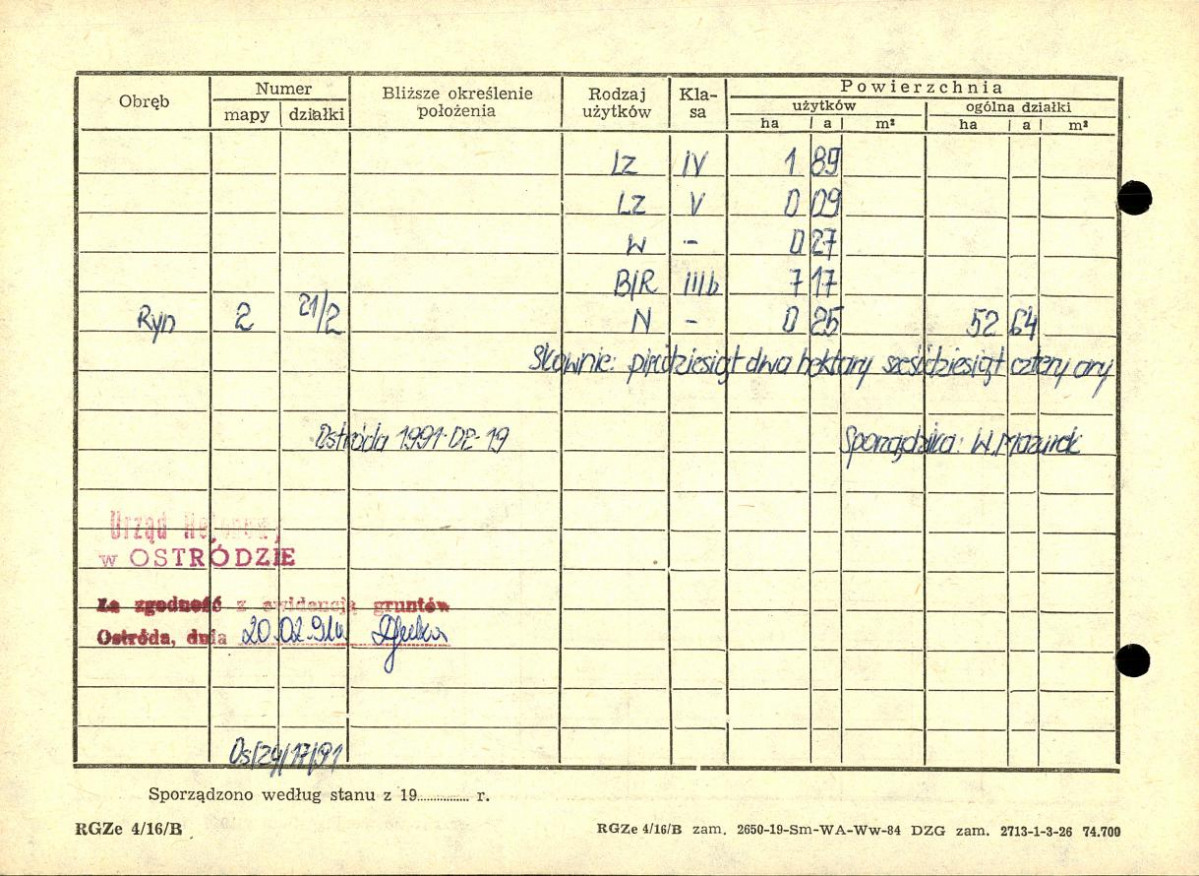 Obręb Numer Bliższe określenie położenia Rodzaj użytków Kla-sa Powierzchnia
mapy działki użytków ogólna działki
ha a m² ha a m²
Lz IV 1 89
Lz V 0 09
W - 0 27
B/R IIIb 7 17
Ryn 2 21/2 N - 0 25 52 64
Słownie: pięćdziesiąt dwa hektary sześćdziesiąt cztery ary
Ostróda 1991-02-19 Sporządziła: W. Mazurek
Urząd Rejonowy
w OSTRÓDZIE
Za zgodność z ewidencją gruntów
Ostróda, dnia 20.02.91r
Os/24/17/91
Sporządzono według stanu z 19 r.
RGZe 4/16/B
RGZe 4/16/B zam. 2650-19-Sm-WA-Ww-84 DZG zam. 2713-1-3-26 74.700